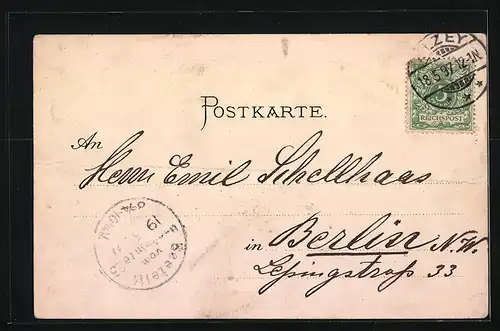 ZEY
18.5.97.12-1N
5
REICHSPOST
POSTKARTE.
An
Herrn Emil Schellhaas
in Berlin N.W.
Lessingstraße 33
Bestellt
vom
19